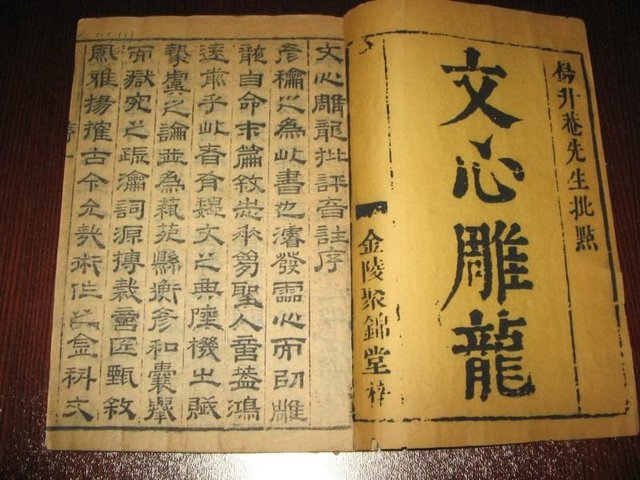 楊升菴先生批點
文心雕龍
金陵聚錦堂梓
文心雕龍批評音註序
彥龢之為此書也濬發靈心而以雕
龍自命末篇敘志垂夢聖人意益鴻
遠前乎此者有魏文之典陸機之賦
摯虞之論並為藝苑縣衡彥和囊舉
而獄究之疏瀹詞源博裁意匠甄敘
風雅揚搉古今允哉術作之金科文